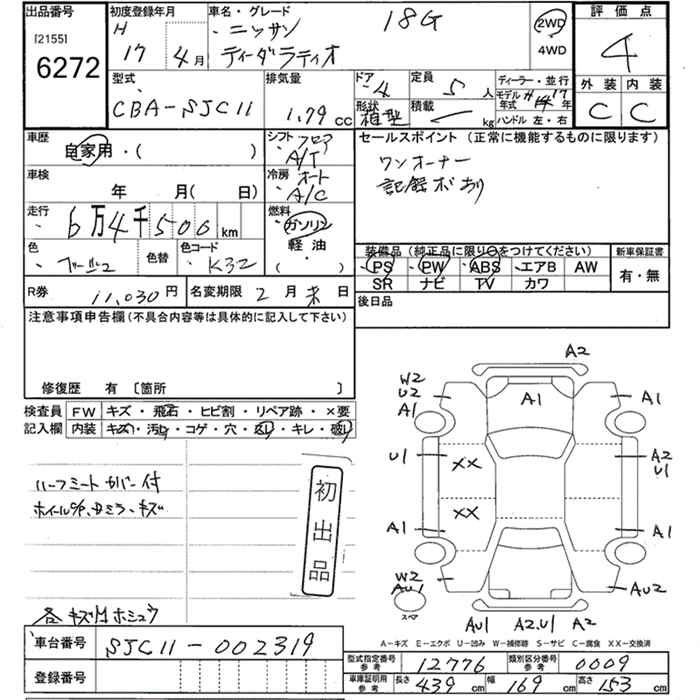 出品番号
[2155]
6272
初度登録年月
H
17年4月
車名・グレード
ニッサン
ティーダラティオ
18G
2WD
4WD
評価点
4
外装 内装
C C
型式
CBA-SJC11
排気量
1.79 cc
ドア
4
定員
5 人
形状
箱型
積載
kg
ディーラー・並行
モデル年式 H17年
ハンドル 左・右
車歴
自家用・( )
車検
年 月( 日)
走行
6万4千500km
色
ベージュ
色替
色コード
K32
シフト フロア
A/T
冷房 オート
A/C
燃料
ガソリン
軽油
( )
セールスポイント(正常に機能するものに限ります)
ワンオーナー
記録ボあり
装備品(純正品に限り○をつけてください)
PS PW ABS エアB AW
SR ナビ TV カワ
新車保証書
有・無
後日品
R券
11,030円
名変期限 2月末日
注意事項申告欄(不具合内容等は具体的に記入して下さい)
修復歴 有 〔箇所 〕
検査員
記入欄
FW キズ・飛石・ヒビ割・リペア跡・×要
内装 キズ・汚レ・コゲ・穴・スレ・キレ・破レ
ハーフミートカバー付
初出品
A2
W2
U2
A1
A1
A1
U1
XX
A2
U1
XX
A1
A1
W2
AU1
スペア
AU1
A2.U1
A2
AU2
A-キズ E-エクボ U-凹み W-補修跡 S-サビ C-腐食 XX-交換済
車台番号
SJC11-002319
登録番号
型式指定番号
参考
12776
類別区分番号
参考
0009
車庫証明用
参考
長さ 439cm
幅 169cm
高さ 153cm